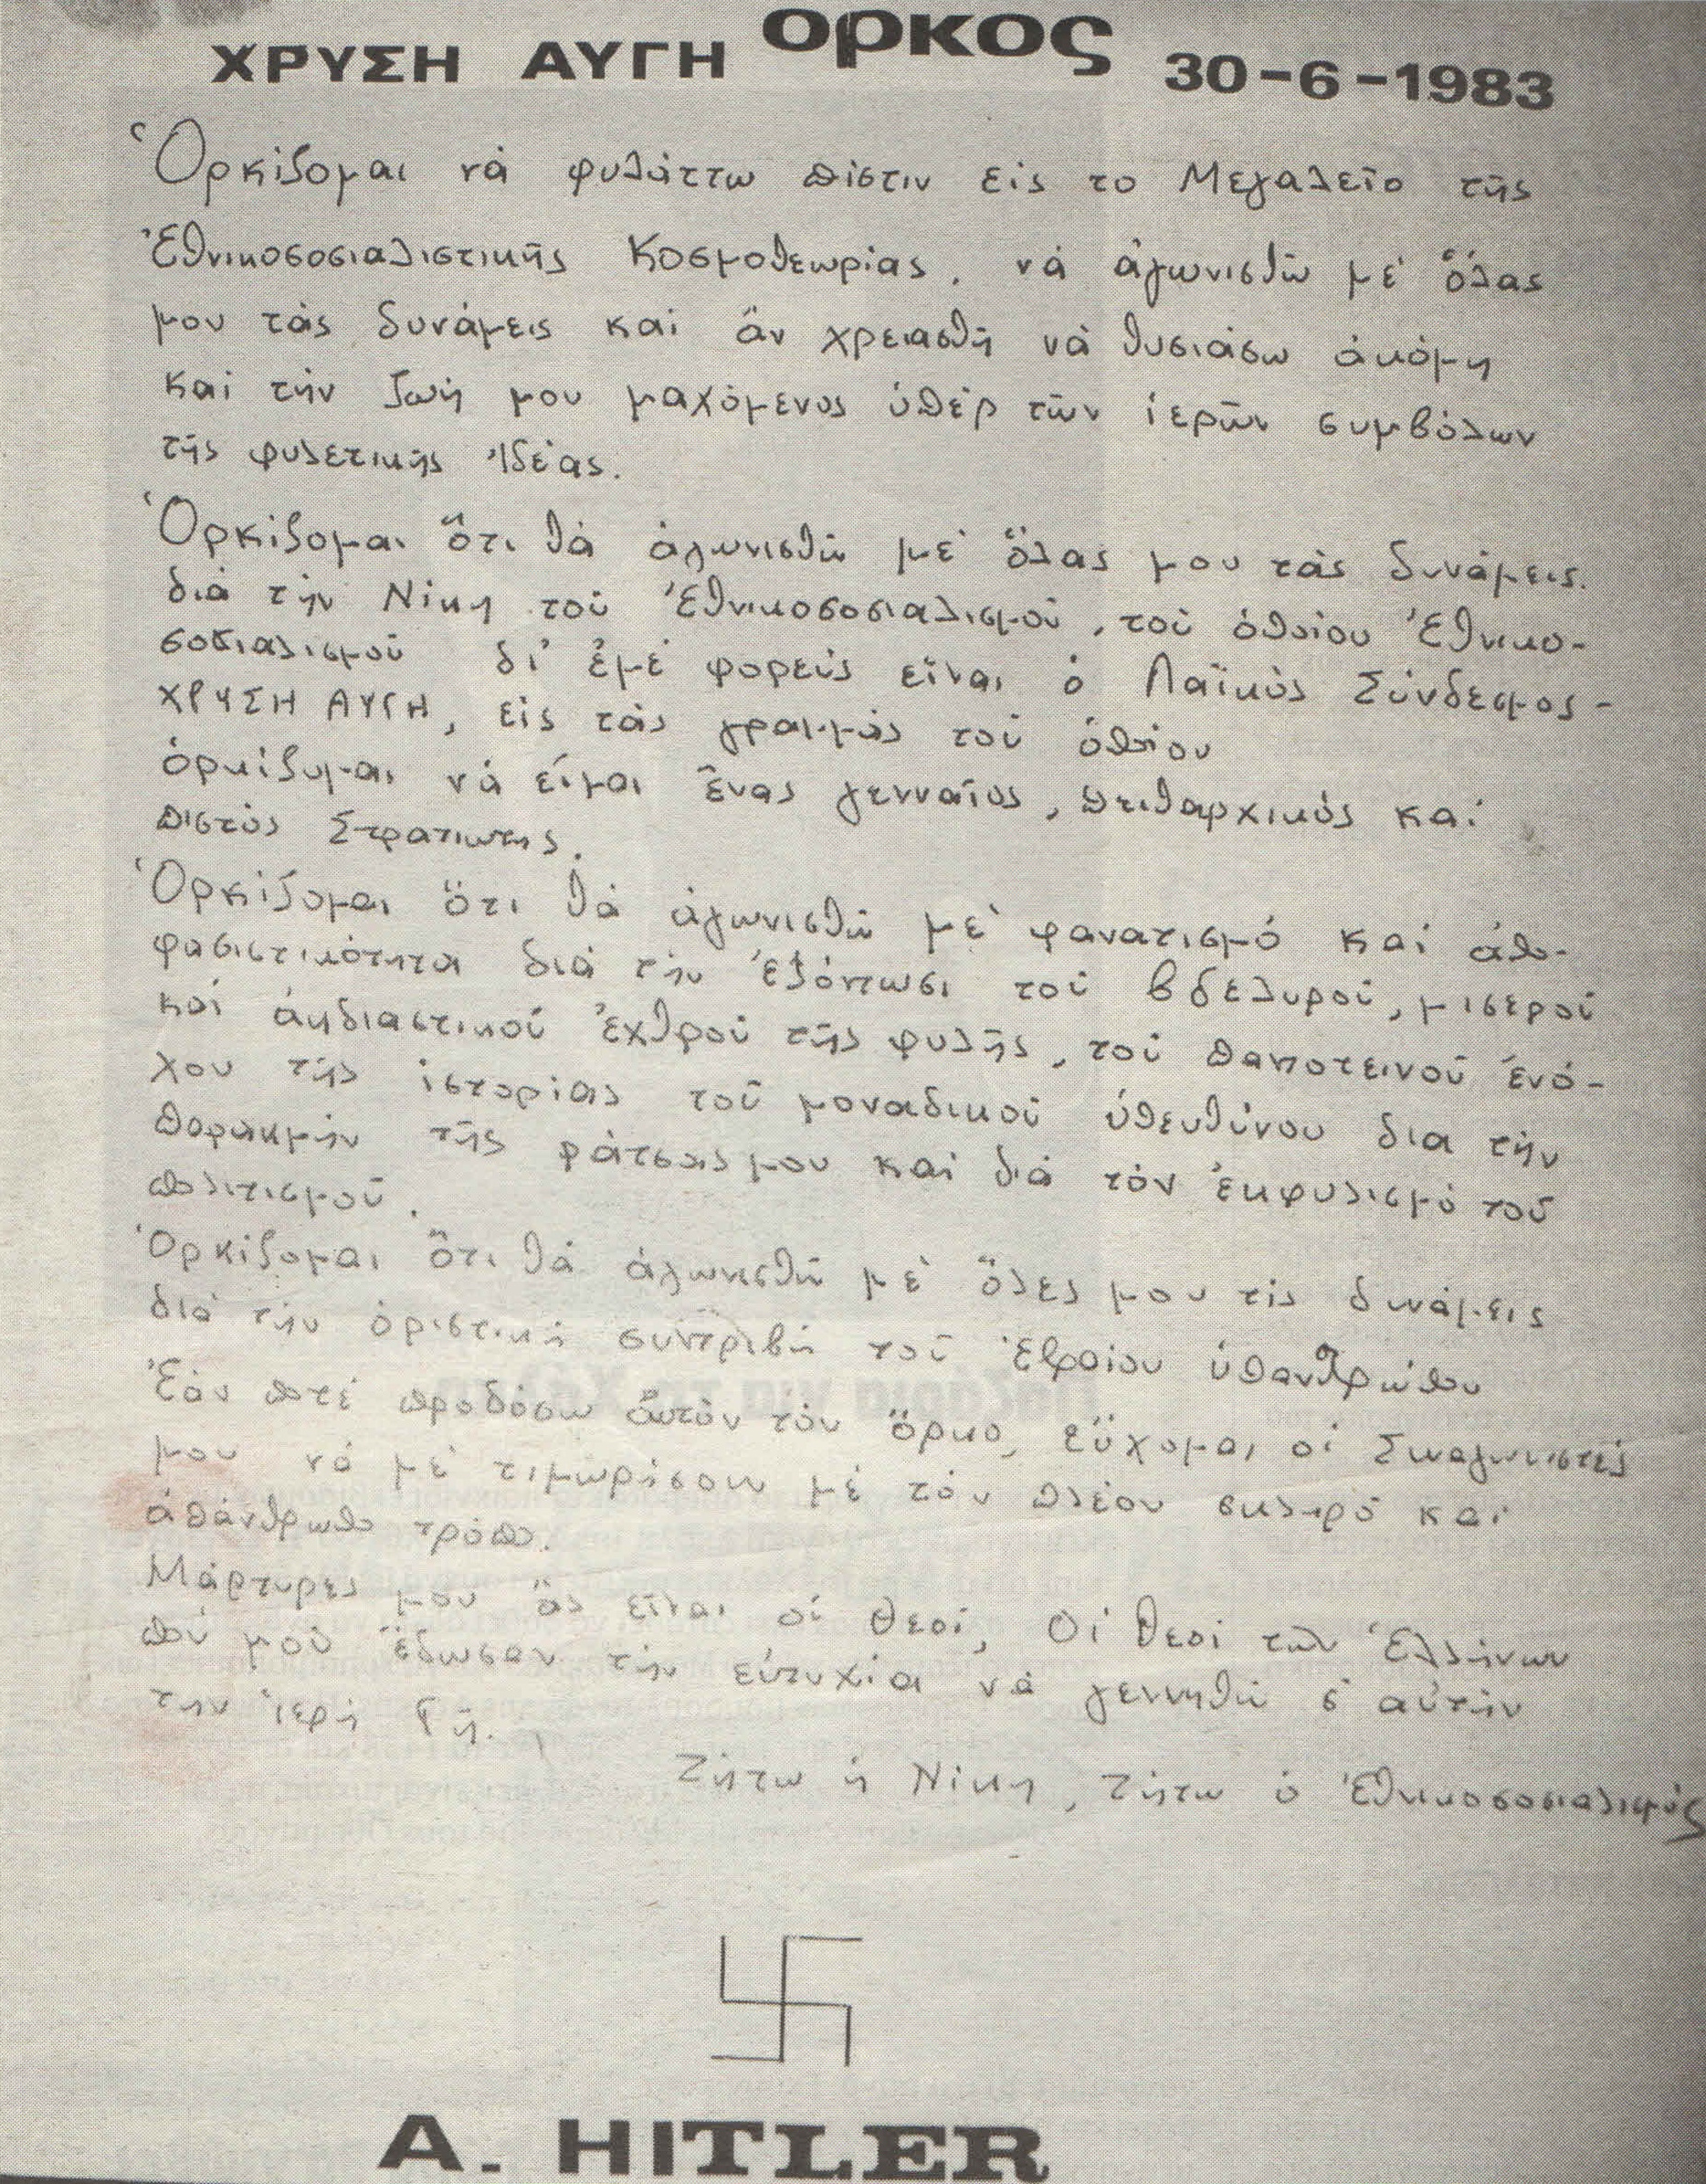 ΧΡΥΣΗ ΑΥΓΗ ορκος 30-6-1983
Ὁρκίζομαι νά φυλάττω πίστιν εἰς το Μεγαλεῖο τῆς
Ἐθνικοσοσιαλιστικῆς Κοσμοθεωρίας, νά ἀγωνισθῶ μέ ὅλας
μου τάς δυνάμεις καί ἄν χρειασθῆ νά θυσιάσω ἀκόμη
καί τήν Ζωή μου μαχόμενος ὑπέρ τῶν ἱερῶν συμβόλων
τῆς φυλετικῆς Ἰδέας.
Ὁρκίζομαι ὅτι θά ἀγωνισθῶ μέ ὅλας μου τάς δυνάμεις.
διά τήν Νίκη τοῦ Ἐθνικοσοσιαλισμοῦ, τοῦ ὁποίου Ἐθνικο-
σοσιαλισμοῦ δι' ἐμέ φορεύς εἶναι ὁ Λαϊκός Σύνδεσμος-
ΧΡΥΣΗ ΑΥΓΗ, εἰς τάς γραμμάς τοῦ ὁποίου
ὁρκίζομαι νά εἶμαι ἕνας γενναῖος, πειθαρχικός καί
πιστός Στρατιωτης.
Ὁρκίζομαι ὅτι θά ἀγωνισθῶ μέ φανατισμό καί ἀπο-
φασιστικότητα διά τήν ἐξόντωσι τοῦ βδελυροῦ, μισεροῦ
καί ἀηδιαστικοῦ ἐχθροῦ τῆς φυλῆς, τοῦ παντοτεινοῦ ἐνό-
χου τῆς ἱστορίας τοῦ μοναδικοῦ ὑπευθύνου δια τήν
παρακμήν τῆς ράτσας μου καί διά τόν ἐκφυλισμό τοῦ
πολιτισμοῦ.
Ὁρκίζομαι ὅτι θά ἀγωνισθῶ μέ ὅλες μου τίς δυνάμεις
διά τήν ὁριστική συντριβή τοῦ Ἑβραίου ὑπανθρώπου
Ἐάν ποτέ προδόσω αὐτόν τόν ὅρκο, εὔχομαι οἱ Συναγωνιστές
μου νά μέ τιμωρήσουν μέ τόν πλέον σκληρό καί
ἀπάνθρωπο τρόπο.
Μάρτυρες μου ἄς εἶναι οἱ Θεοί, Οἱ θεοί τῶν Ἑλλήνων
πού μοῦ ἔδωσαν τήν εὐτυχία νά γεννηθῶ σ' αὐτήν
την ἱερή Γῆ.
Ζήτω ἡ Νίκη, Ζήτω ὁ Ἐθνικοσοσιαλισμός
A. HITLER